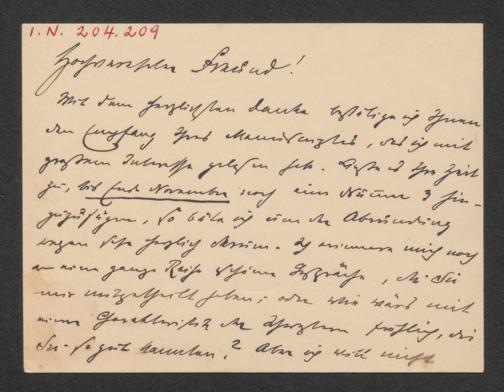 I.N. 204.209
Hochverehrter Freund!
Mit dem herzlichsten Danke bestätige ich Ihnen
den Empfang Ihres Manuscriptes, das ich mit
großem Interesse gelesen habe. Ihre Zeit
zu, bis Ende November noch eine
zuzufügen, so bitte ich um der Abrundung
wegen sehr herzlich darum. Ich erinnere mich noch
an eine ganze Reihe schöner Gespräche, die Sie
mir mitgetheilt haben; oder wie wär's mit
einer Charakteristik der Fröhlich, die
Sie so gut kannten? Aber ich will nicht